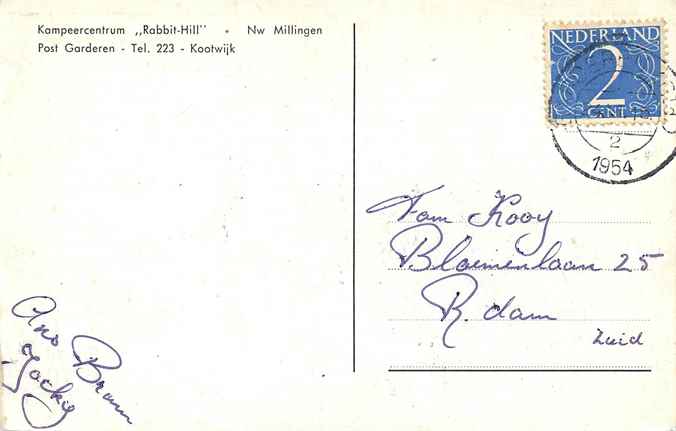 Kampeercentrum „Rabbit-Hill" • Nw Millingen
Post Garderen - Tel. 223 - Kootwijk
NEDERLAND
2
CENT
2
1954
Fam Kooy
Bloemenlaan 25
R. dam
Zuid
Bram
Jocky